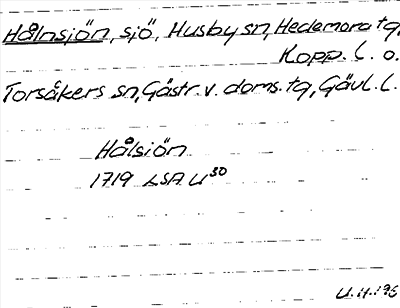 Hålnsjön, sjö, Husby sn, Hedemora tg,
Kopp. l. o.
Torsåkers sn, Gästr. v. doms. tg, Gävl. l.
Hålsiön
1719 LSA U 30
U.H. 96